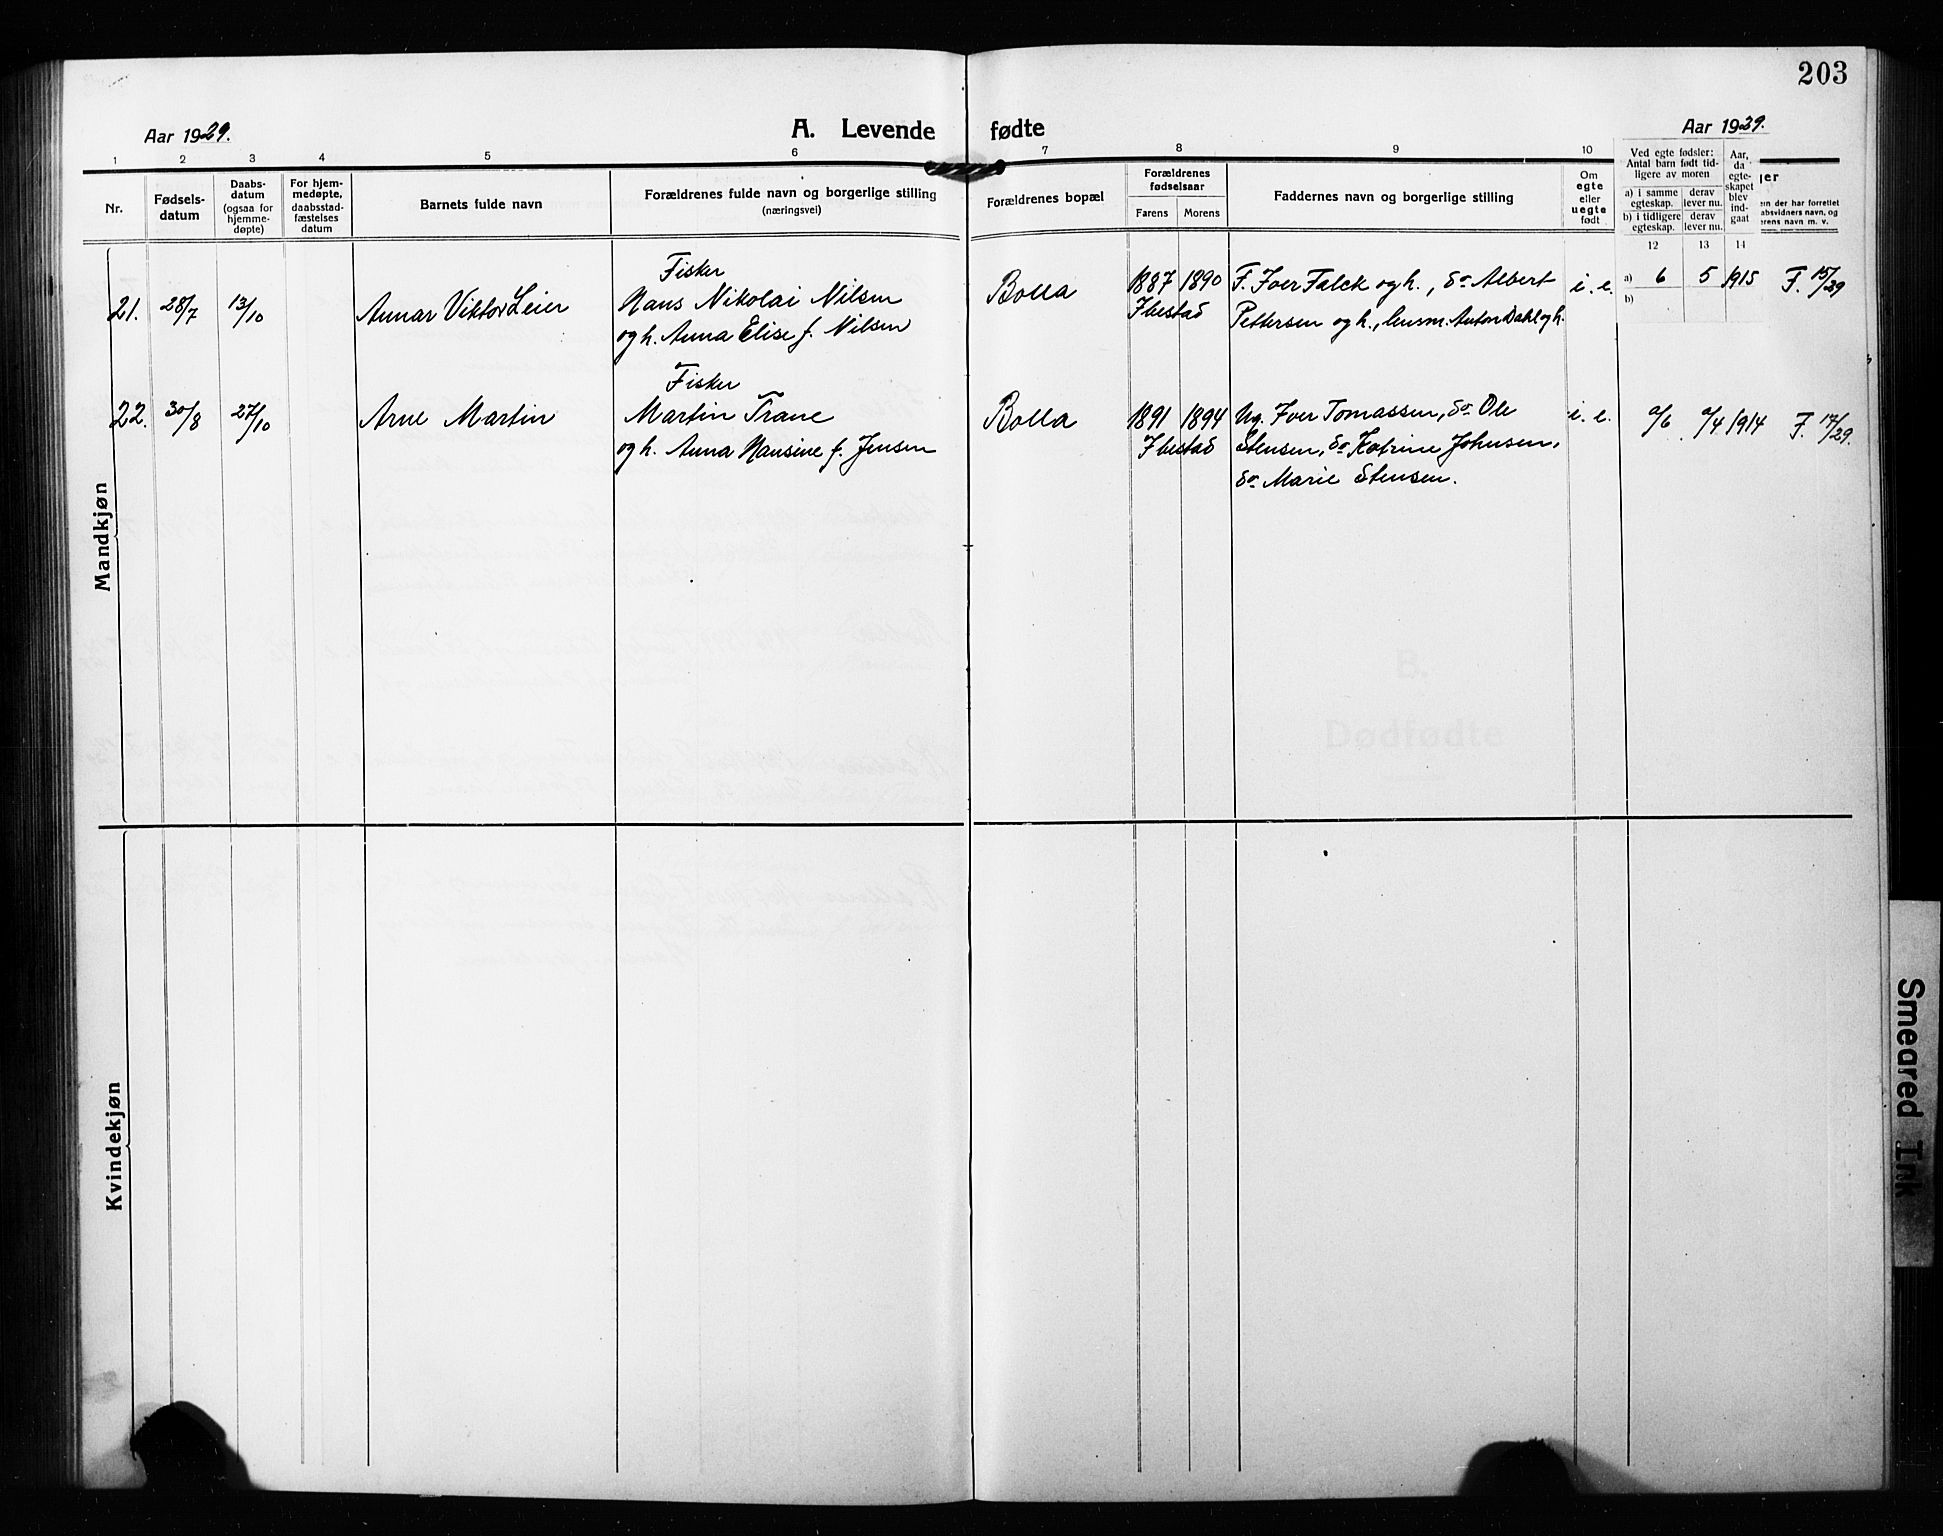 203
Aar 1929.
A. Levende fødte
Aar 1929.
1 2 3 4 5 6 7 8 9 10
Nr.
Fødsels-
datum
Daabs-
datum
(ogsaa for
hjemme-
døpte)
For hjem-
medøpte,
daabsstad-
fæstelses
datum
Barnets fulde navn
Forældrenes fulde navn og borgerlige stilling
(næringsvei)
Forældrenes bopæl
Forældrenes
fødselsaar
Farens Morens
Faddernes navn og borgerlige stilling
Om
egte
eller
uegte
født
Ved egte fødsler:
Antal barn født tid-
ligere av moren
a) i samme
egteskap.
derav
lever nu.
b) i tidligere
egteskap.
derav
lever nu.
Aar,
da
egte-
skapet
blev
ind-
gaat
12 13 14
ger
en der har forrettet
absvidners navn, og
erens navn m. v.
Mandkjøn
21. 28/7 13/10 Annar Viktor Leier
Fisker
Hans Nikolai Nilsen
og h. Anna Elise f. Nilsen
Bolla
1887 1890
Ibestad
F. Iver Falck og h., do Albert
Pettersen og h., lensm. Anton Dahl og h.
i. e.
a) 6 5 1915
b)
F. 15/29
22. 30/8 27/10 Arne Martin
Fisker
Martin Trane
og h. Anna Hansine f. Jensen
Bolla
1891 1894
Ibestad
Ug. Iver Tomassen, do Ole
Stensen, do Katrine Johnsen,
do Marie Stensen.
i. e.
a/6 a/4 1914 F. 17/29.
B.
Dødfødte
Kvindekjøn
Smeared Ink